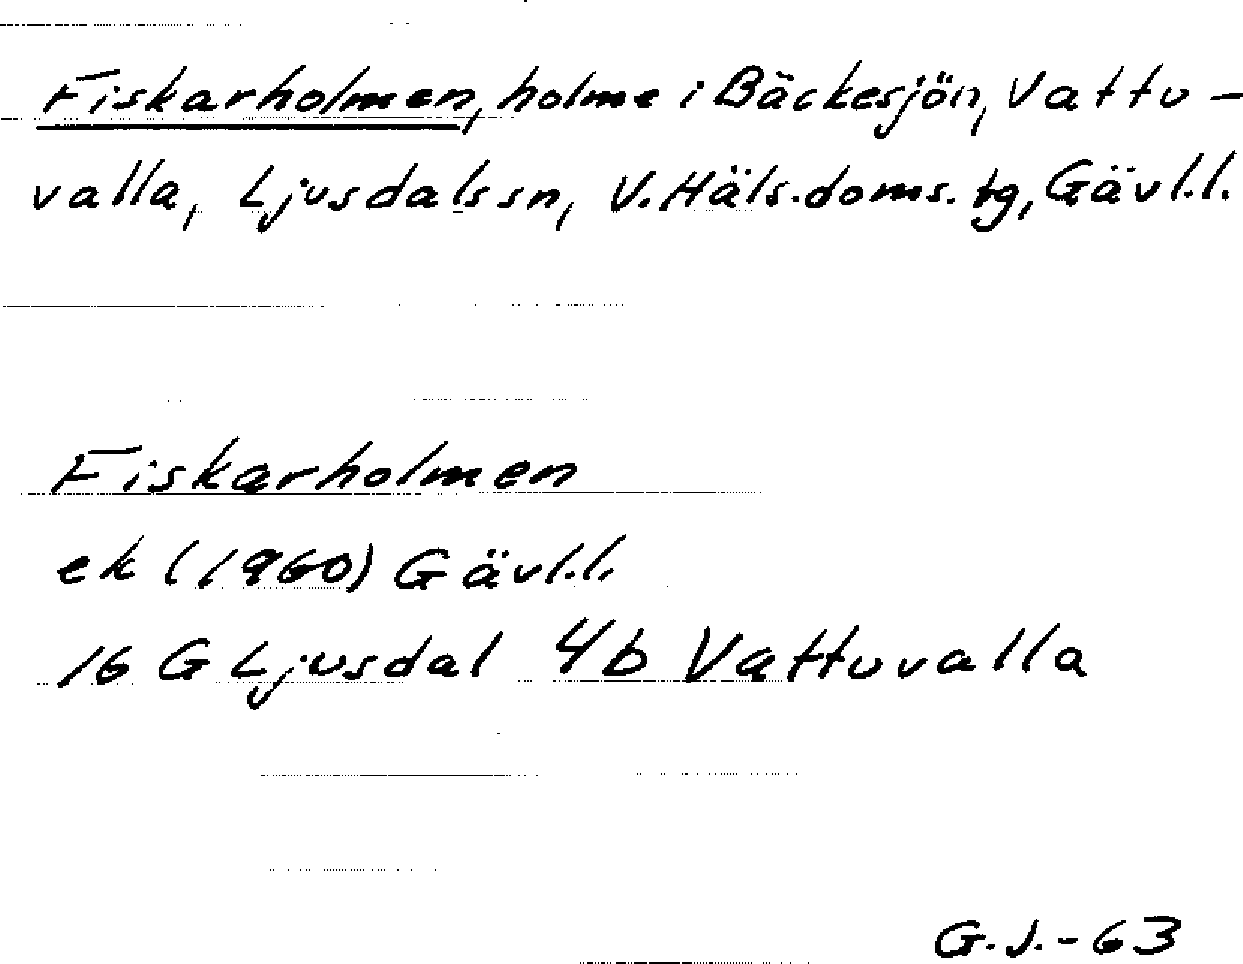 Fiskarholmen, holme i Bäckesjön, Vattu-
valla, Ljusdals sn, V. Häls. doms. tg, Gävl.l.
Fiskarholmen
ek (1960) Gävl.l.
16 G Ljusdal 4b Vattuvalla
G.J.-63